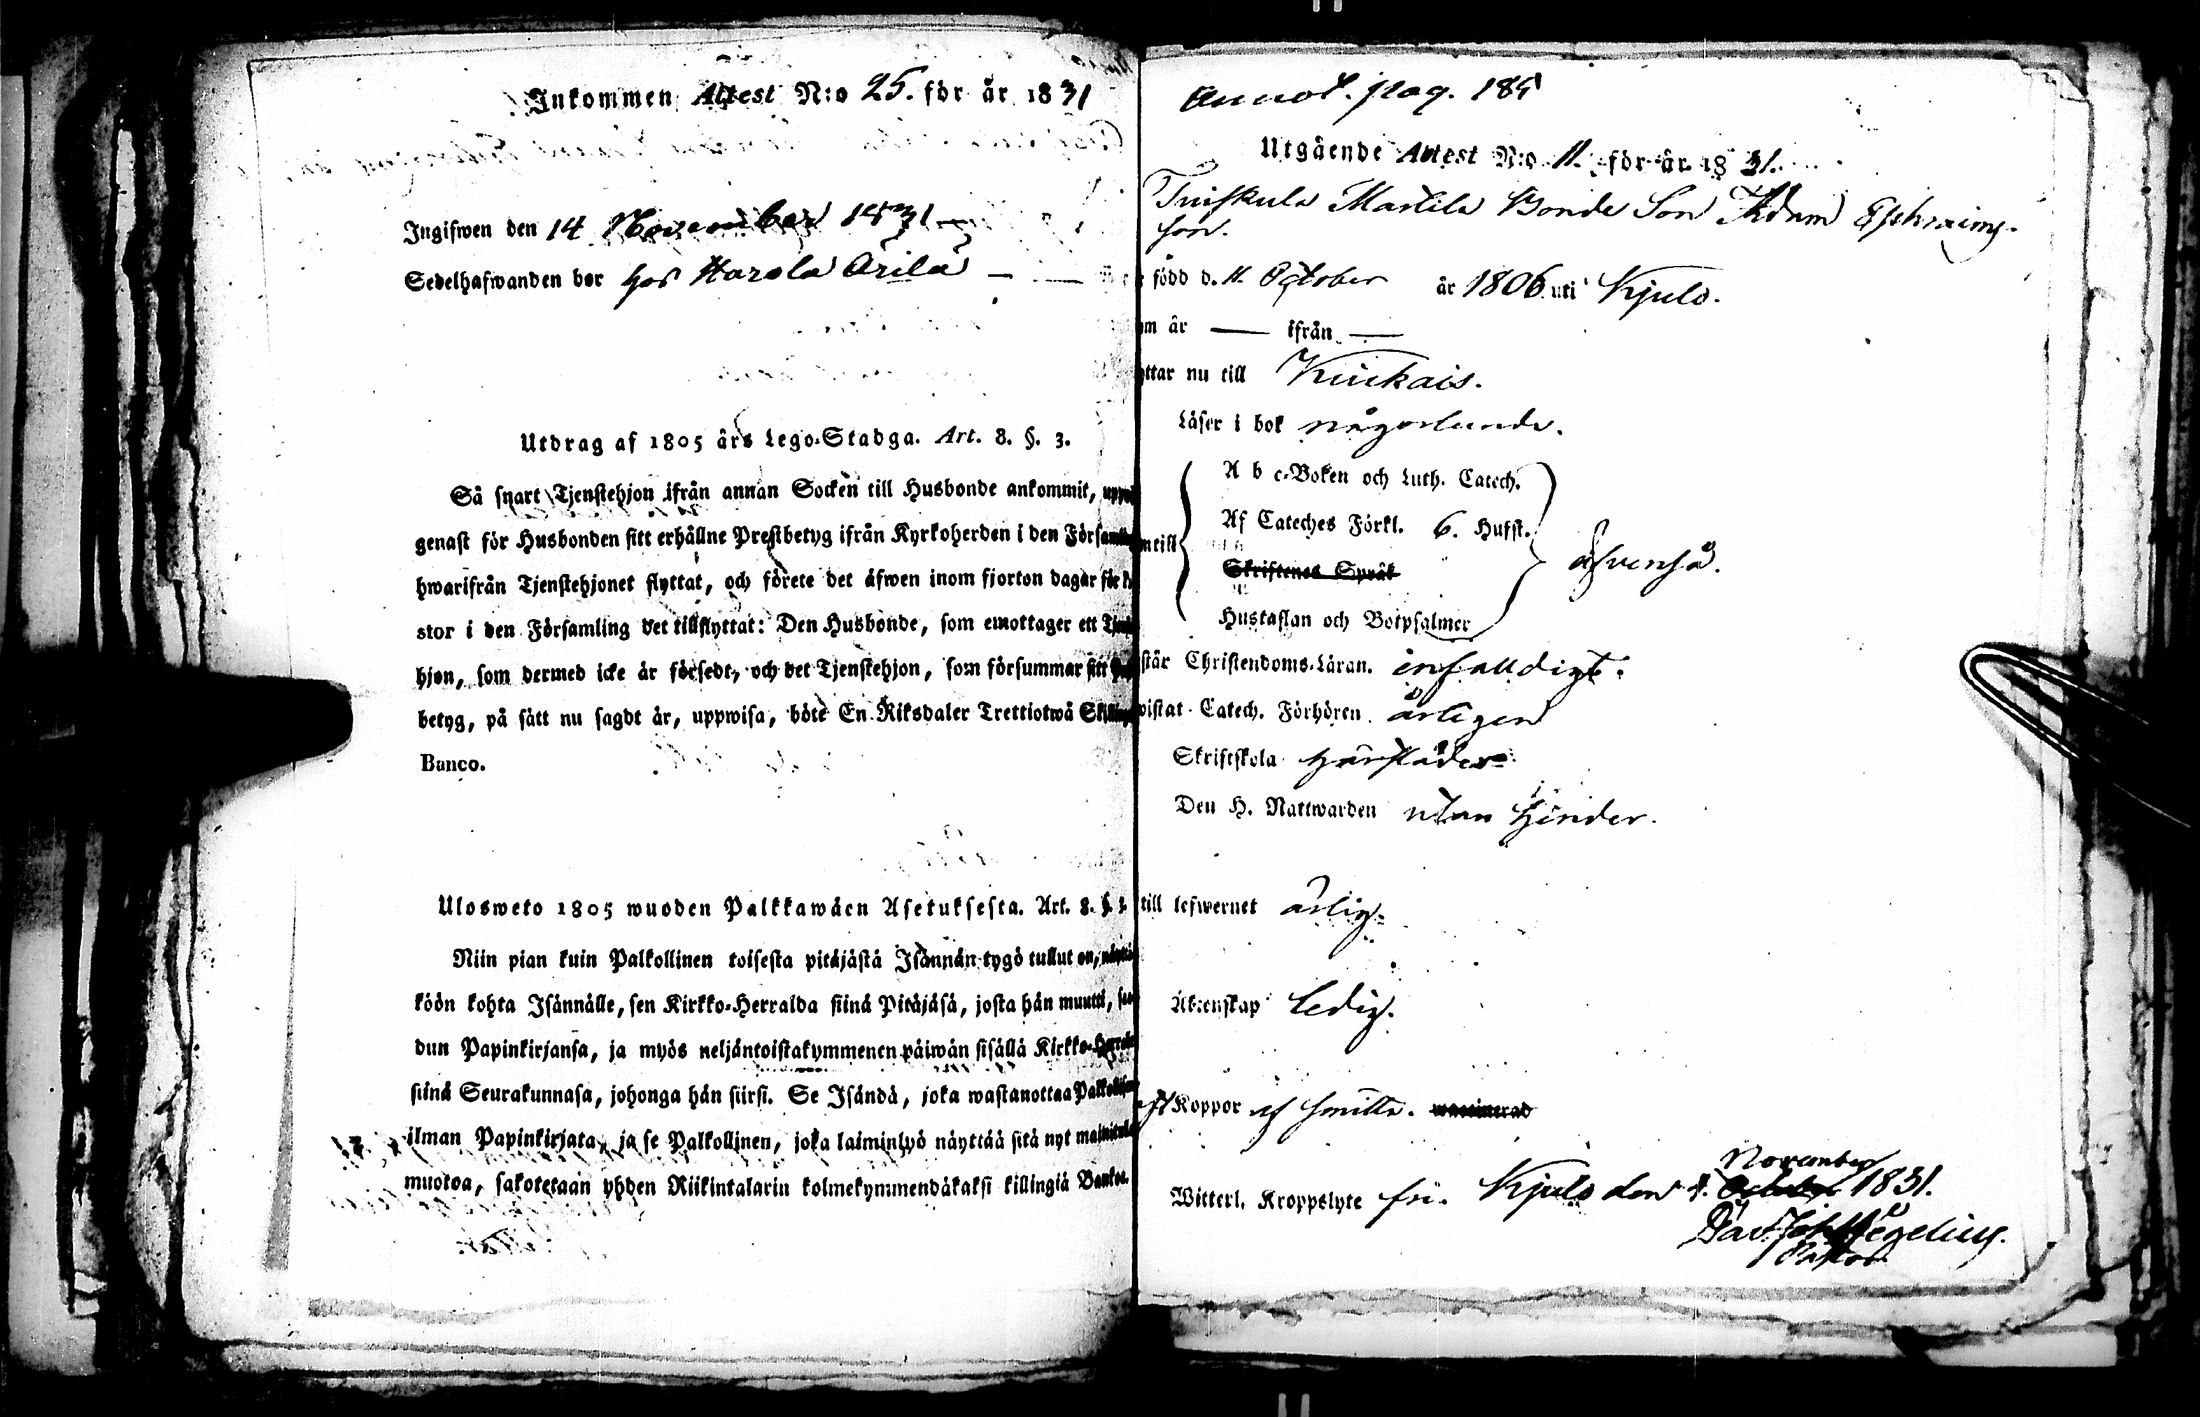 Inkommen Attest N:o 25. för år 1831
Ingifwen den 14 November 1831
Sedelhafwanden bor hos Harola Ärilä
Utdrag af 1805 års Lego-Stadga. Art. 8. §. 3.
Så snart Tjenstehjon ifrån annan Socken till Husbonde ankommit,
genast för Husbonden sitt erhållne Prestbetyg ifrån Kyrkoherden i den
hwarifrån Tjenstehjonet flyttat, och förete det äfwen inom fjorton dagar för
stor i den Församling det tillflyttat: Den Husbonde, som emottager ett
hjon, som dermed icke är försedt, och det Tjenstehjon, som försummar sitt
betyg, på sätt nu sagdt är, uppwisa, böte En Riksdaler Trettiotwå
Banco.
Ulosweto 1805 wuoden Palkkawäen Asetuksesta. Art. 8. §. 3.
Niin pian kuin Palkollinen toisesta pitäjästä Isännän tygö tullut on,
köön kohta Isännälle, sen Kirkko-Herralda siinä Pitäjäsä, josta hän muutti,
dun Papinkirjansa, ja myös neljäntoistakymmenen päiwän sisällä
siinä Seurakunnasa, johonga hän siirsi. Se Isändä, joka wastanottaa
ilman Papinkirjata, ja se Palkollinen, joka laiminlyö näyttää sitä nyt
muotoa, sakotetaan yhden Riikintalarin kolmekymmendäkaksi killingiä Bankos.
Annot. pag. 185
Utgående Attest N:o 11. för år 1831.
Tuiskula Martila Bonde Son Adam Ephraims-
son.
född d. 11. October år 1806 uti Kjulo.
m år — ifrån —
ttar nu till Kiukais.
Läser i bok någorlunda.
A b c-Boken och Luth. Catech.
Af Cateches Förkl. 6. Hufst.
m till
Skriftenes Språk
Hustaflan och Botpsalmer
står Christendoms-Läran. enfaldigt.
wistat Catech. Förhören årligen
Skriftskola
Den H. Nattwarden utan hinder.
till lefwernet ärlig.
Äktenskap ledig.
Koppor af smitta. waccinerad
Witterl. Kroppslyte fri. Kjulo den 4. October
November 1831.
Pastor